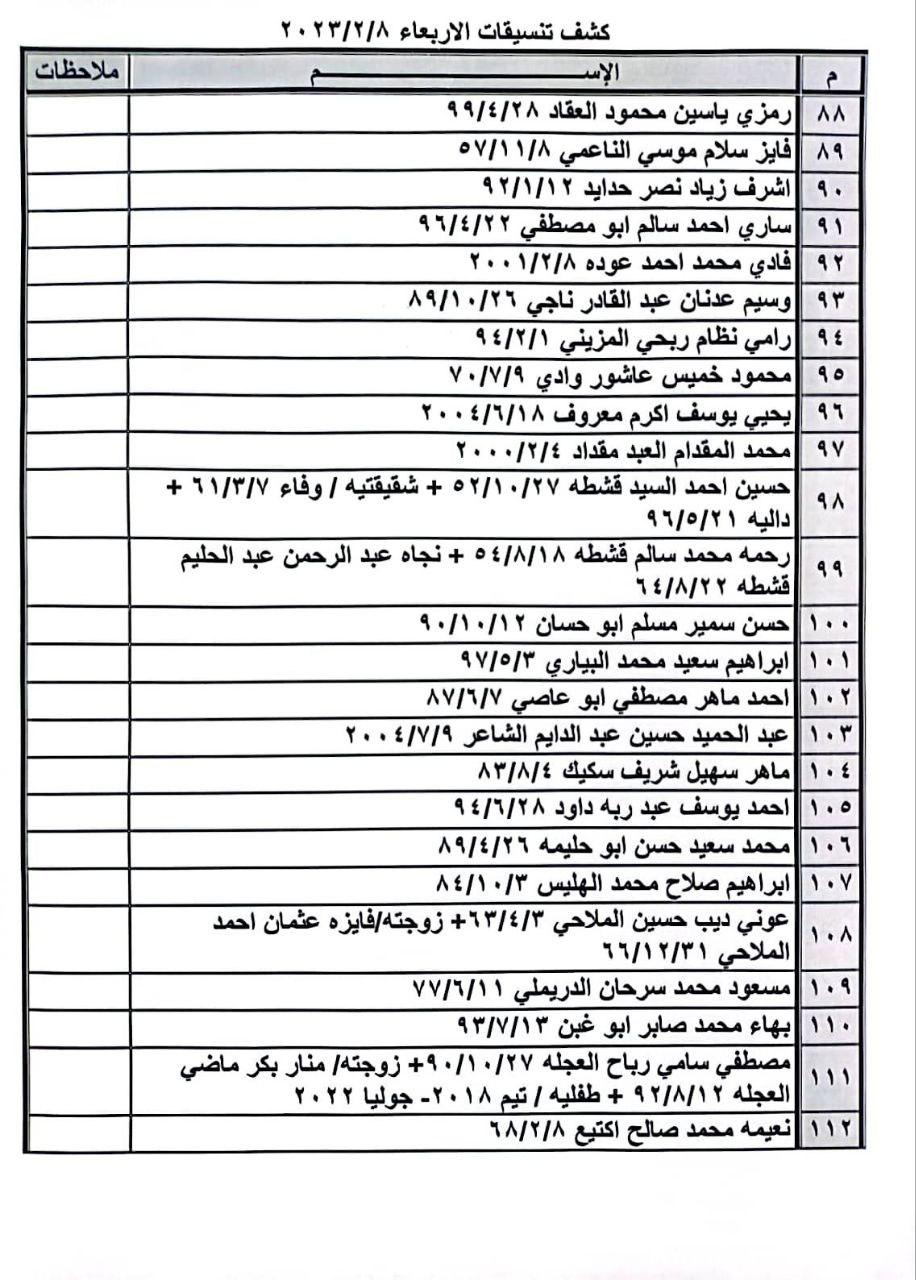 كشف تنسيقات الاربعاء ٢٠٢٣/٢/٨
م الإســـــم ملاحظات
٨٨ رمزي ياسين محمود العقاد ٩٩/٤/٢٨
٨٩ فايز سلام موسي الناعمي ٥٧/١١/٨
٩٠ اشرف زياد نصر حدايد ٩٢/١/١٢
٩١ ساري احمد سالم ابو مصطفي ٩٦/٤/٢٢
٩٢ فادي محمد احمد عوده ٢٠٠١/٢/٨
٩٣ وسيم عدنان عبد القادر ناجي ٨٩/١٠/٢٦
٩٤ رامي نظام ربحي المزيني ٩٤/٢/١
٩٥ محمود خميس عاشور وادي ٧٠/٧/٩
٩٦ يحيي يوسف اكرم معروف ٢٠٠٤/٦/١٨
٩٧ محمد المقدام العبد مقداد ٢٠٠٠/٢/٤
٩٨ حسين احمد السيد قشطه ٥٢/١٠/٢٧ + شقيقتيه / وفاء ٦١/٣/٧ +
داليه ٩٦/٥/٢١
٩٩ رحمه محمد سالم قشطه ٥٤/٨/١٨ + نجاه عبد الرحمن عبد الحليم
قشطه ٦٤/٨/٢٢
١٠٠ حسن سمير مسلم ابو حسان ٩٠/١٠/١٢
١٠١ ابراهيم سعيد محمد البياري ٩٧/٥/٣
١٠٢ احمد ماهر مصطفي ابو عاصي ٨٧/٦/٧
١٠٣ عبد الحميد حسين عبد الدايم الشاعر ٢٠٠٤/٧/٩
١٠٤ ماهر سهيل شريف سكيك ٨٣/٨/٤
١٠٥ احمد يوسف عبد ربه داود ٩٤/٦/٢٨
١٠٦ محمد سعيد حسن ابو حليمه ٨٩/٤/٢٦
١٠٧ ابراهيم صلاح محمد الهليس ٨٤/١٠/٣
١٠٨ عوني ديب حسين الملاحي ٦٣/٤/٣+ زوجته/فايزه عثمان احمد
الملاحي ٦٦/١٢/٣١
١٠٩ مسعود محمد سرحان الدريملي ٧٧/٦/١١
١١٠ بهاء محمد صابر ابو غبن ٩٣/٧/١٣
١١١ مصطفي سامي رباح العجله ٩٠/١٠/٢٧+ زوجته/ منار بكر ماضي
العجله ٩٢/٨/١٢ + طفليه / تيم ٢٠١٨- جوليا ٢٠٢٢
١١٢ نعيمه محمد صالح اكتيع ٦٨/٢/٨